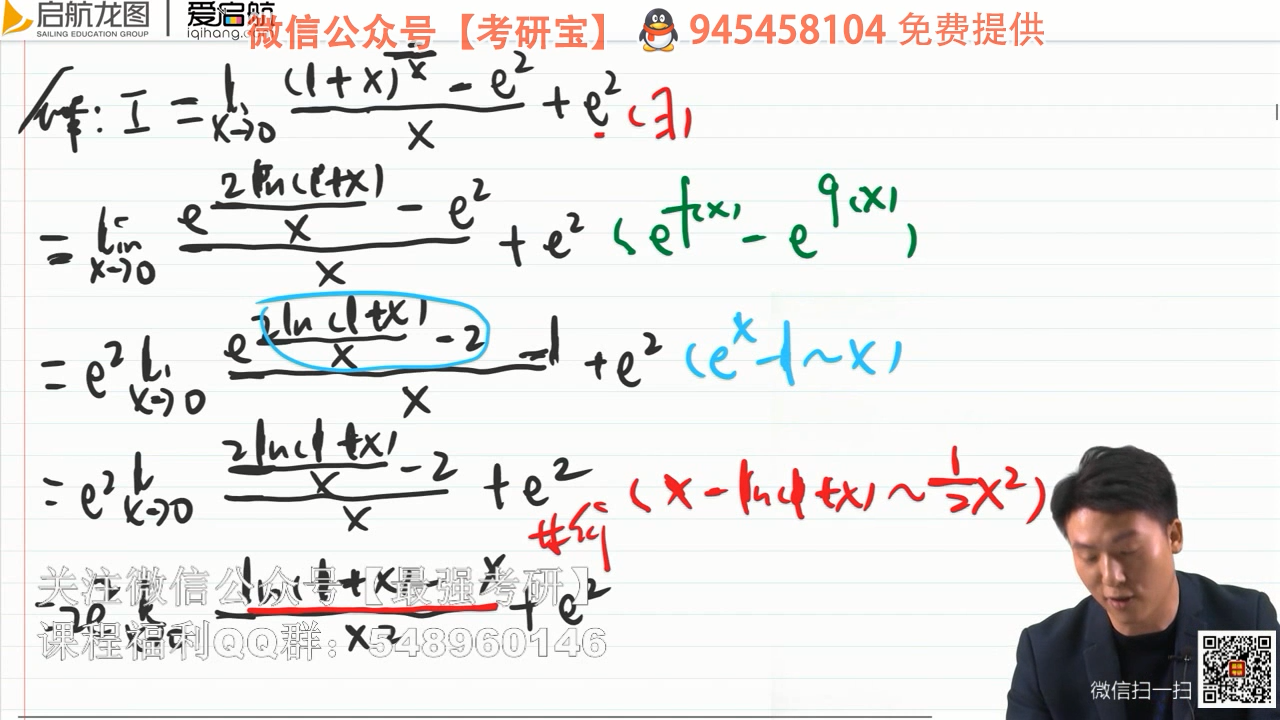 启航龙图 爱启航
SAILING EDUCATION GROUP iqihang.com
微信公众号【考研宝】 945458104 免费提供
解: I = lim x→0 ((1+x)^(2/x) - e^2)/x + e^2 (∃)
= lim x→0 (e^(2ln(1+x)/x) - e^2)/x + e^2 (e^f(x) - e^g(x))
= e^2 lim x→0 (e^(2ln(1+x)/x - 2) - 1)/x + e^2 (e^x - 1 ~ x)
= e^2 lim x→0 (2ln(1+x)/x - 2)/x + e^2 (x - ln(1+x) ~ 1/2 x^2)
= 2e^2 lim x→0 (ln(1+x) - x)/x^2 + e^2
关注微信公众号【最强考研】
课程福利QQ群：548960146
微信扫一扫